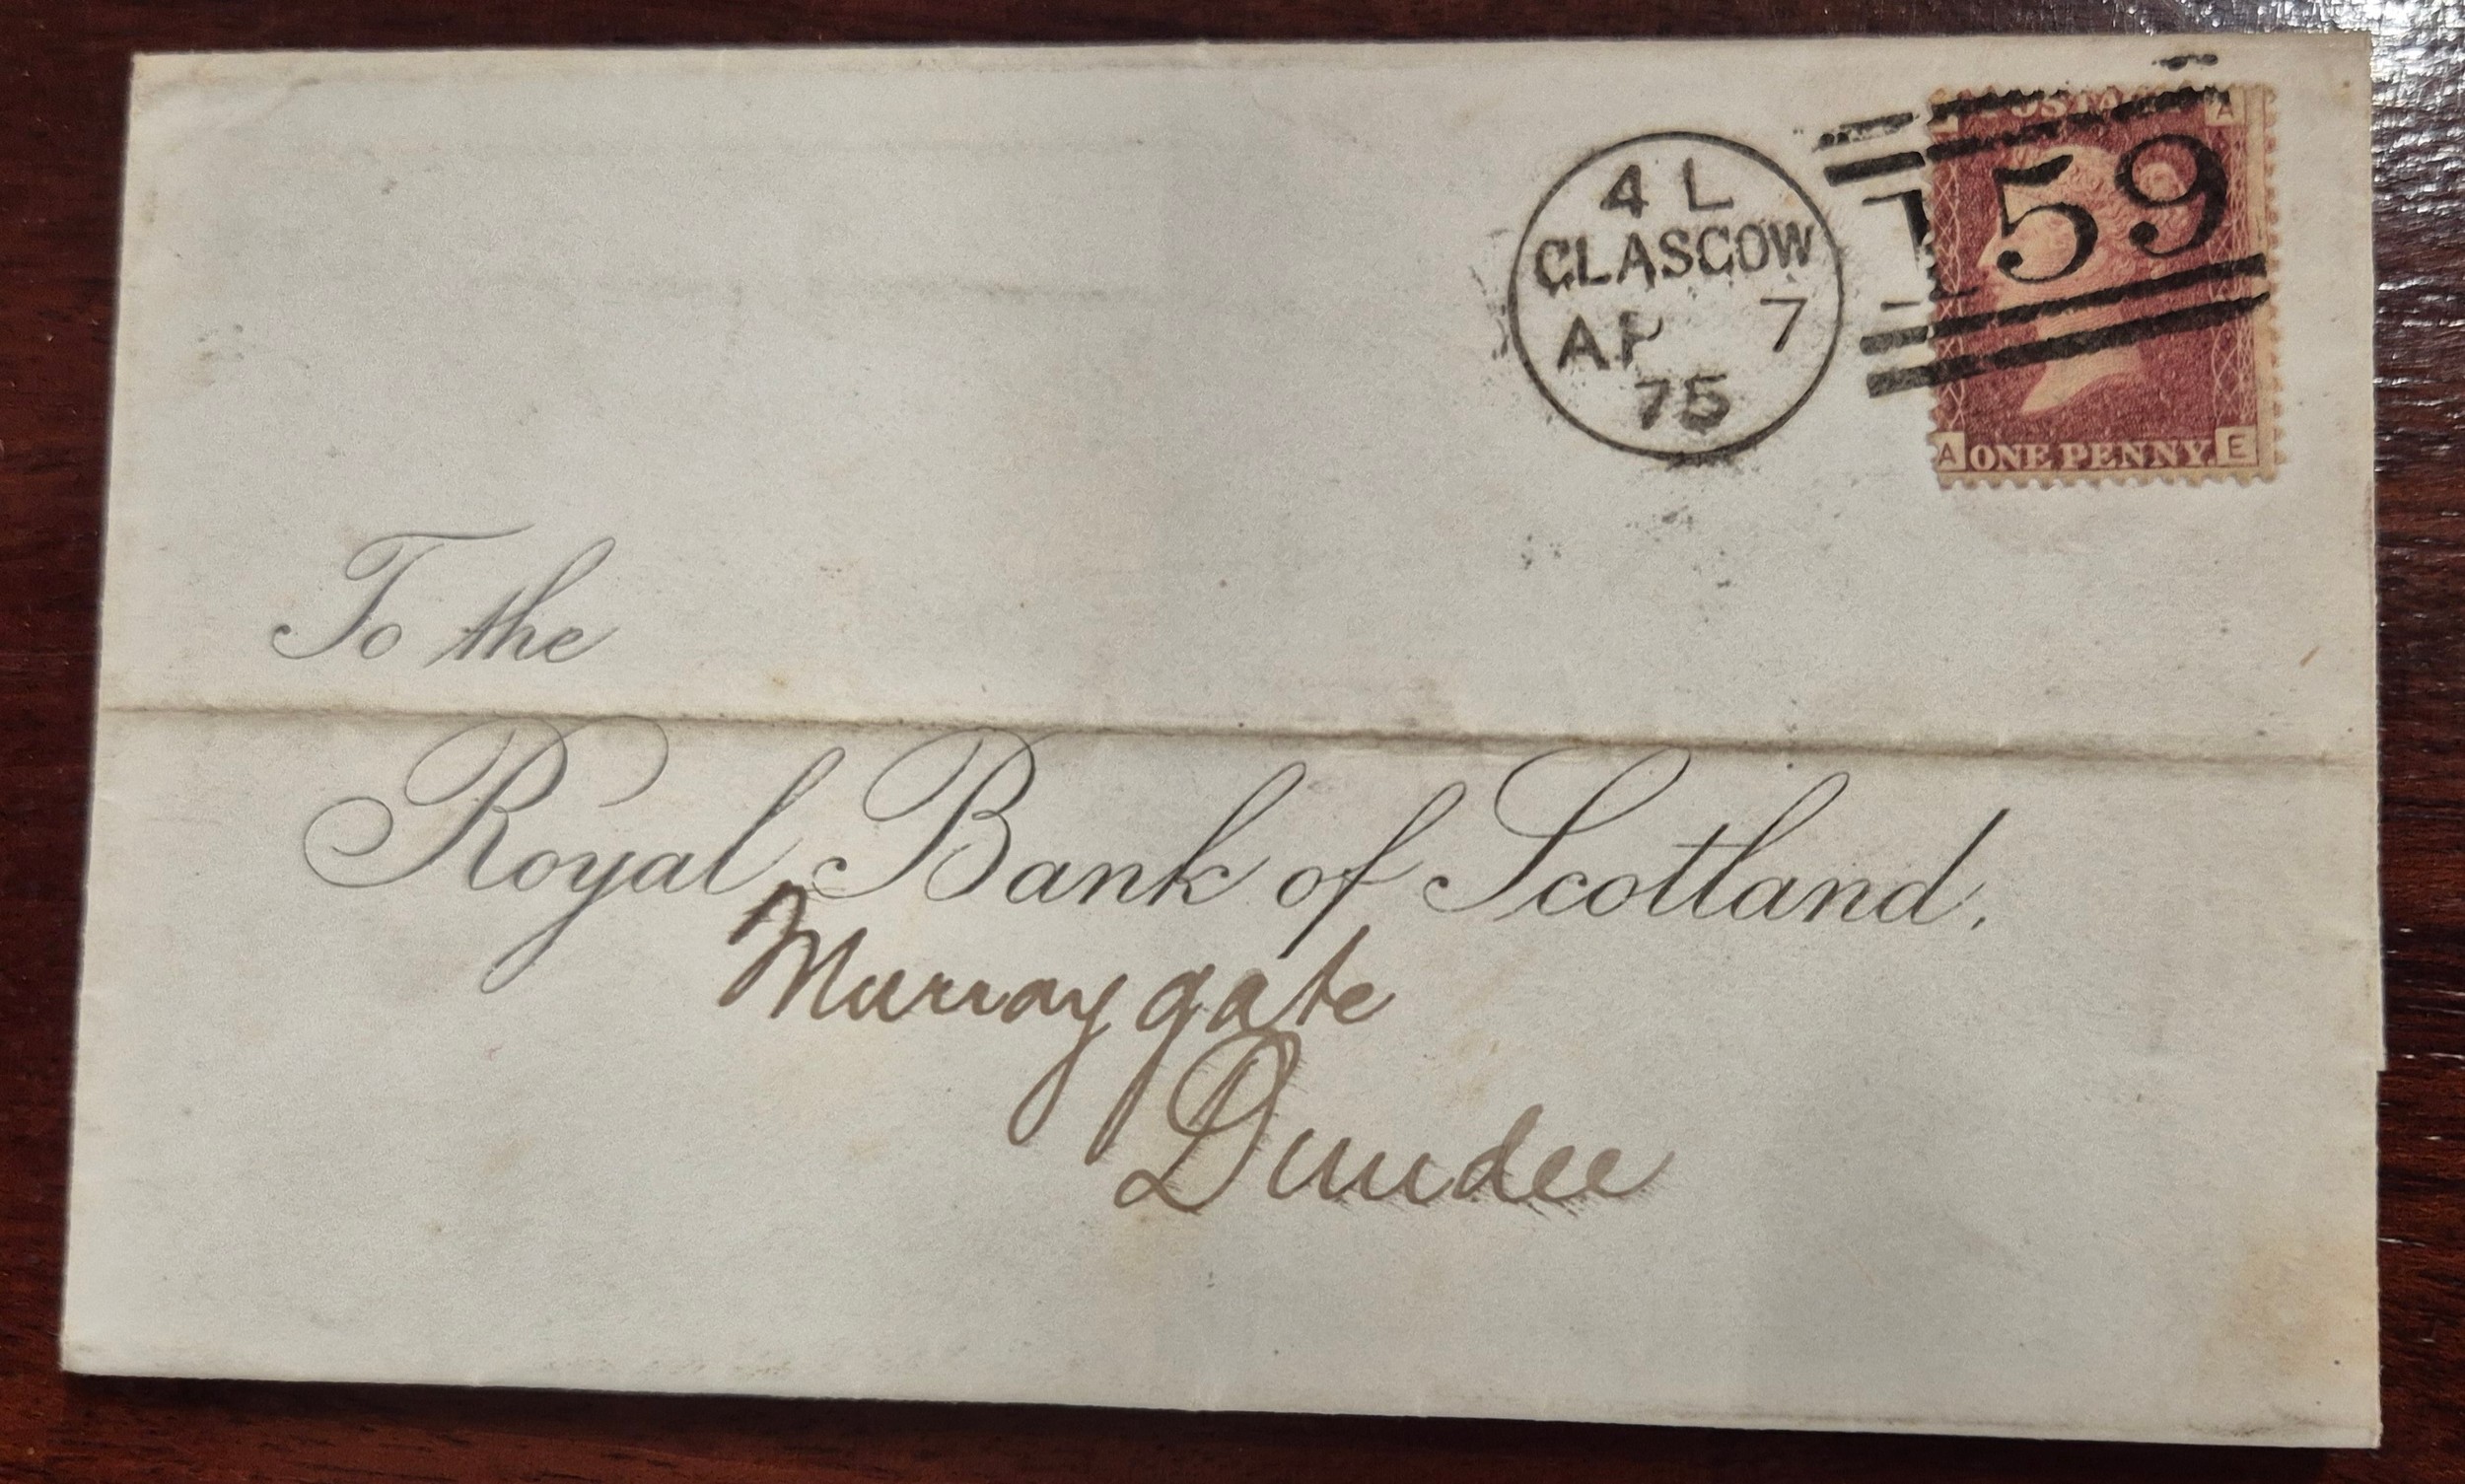 4 L
GLASGOW
AP 7
75
159
POSTAGE
A
A ONE PENNY. E
To the
Royal Bank of Scotland.
Murraygate
Dundee